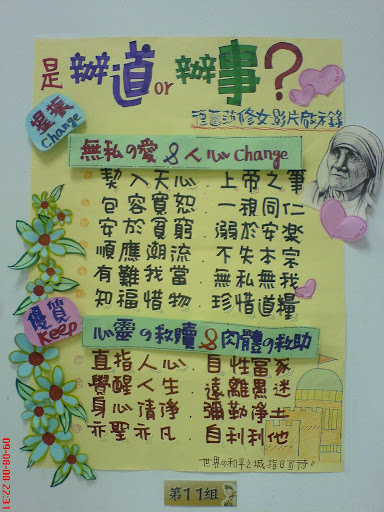 是辦道or辦事?
德蕾莎修女影片啟示錄
Change
無私の愛&人心Change
契入天心．上帝之筆
包容寬恕．一視同仁
安於貧窮．溺於安楽
順應潮流．不失本宗
有難我當．無私無我
知福惜物．珍惜道糧
優質
Keep
心靈の救贖&肉體の救助
直指人心．自性當家
覺醒人生．遠離愚迷
身心清淨．彌勒淨土
亦聖亦凡．自利利他
世界の和平之城指日可待!!
第11組
09-08-08 22:31